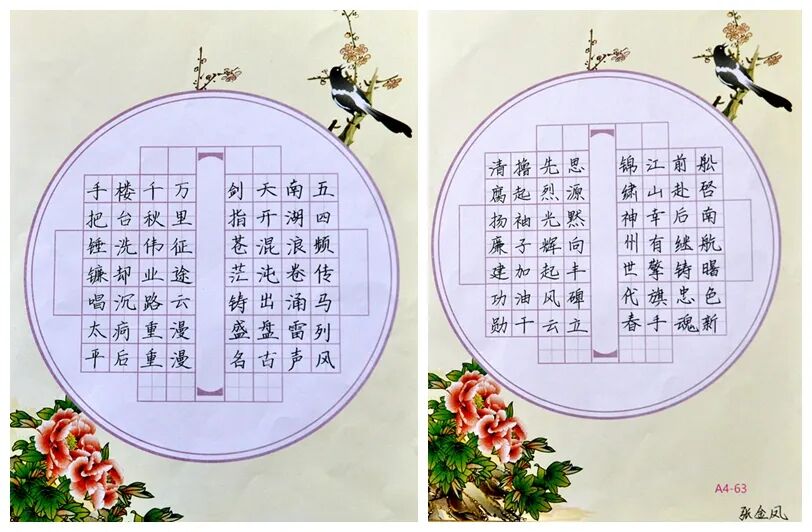 五四频传马列风
南湖浪卷涌雷声
天开混沌出盘古
剑指苍茫铸盛名
万里征途云漫漫
千秋伟业路重重
楼台洗却沉病后
手把锤镰唱太平
船启南航曙色新
前赴后继铸忠魂
江山幸有擎旗手
锦绣神州世代春
思源默向丰碑立
先烈光辉起风云
撸起袖子加油干
清腐扬廉建功勋
A4-63
张金凤